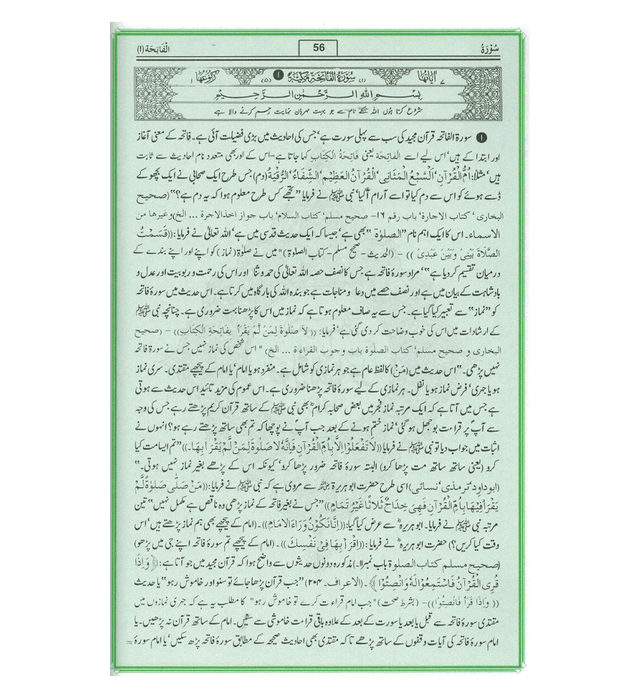 سُوْرَةُ 56 اَلْفَاتِحَة (۱)
اٰیَاتُهَا ۷ (۱) سُوْرَةُ الْفَاتِحَةِ مَكِّيَّةٌ (۵) رُكُوْعُهَا ۱
بِسْمِ اللّٰهِ الرَّحْمٰنِ الرَّحِيْمِ
شروع کرتا ہوں اللہ تعالیٰ کے نام سے جو بہت مہربان نہایت رحم کرنے والا ہے
❶ سورۃ الفاتحہ قرآن مجید کی سب سے پہلی سورت ہے‘ جس کی احادیث میں بڑی فضیلت آئی ہے۔ فاتحہ کے معنی آغاز
اور ابتدا کے ہیں‘ اس لیے اسے الفاتحہ یعنی فاتحۃ الکتاب کہا جاتا ہے۔ اس کے اور بھی متعدد نام احادیث سے ثابت
ہیں‘ مثلاً: اُمُّ الْقُرْآنِ‘ اَلسَّبْعُ الْمَثَانِي‘ اَلْقُرْآنُ الْعَظِيْمُ‘ اَلشِّفَاءُ‘ اَلرُّقْيَةُ (دم) جس طرح ایک صحابی نے ایک بچھو کے
ڈسے ہوئے کو اس سے دم کیا تو اسے آرام آگیا‘ نبی ﷺ نے فرمایا ”تجھے کس طرح معلوم ہوا کہ یہ دم ہے؟“ (صحیح
البخاری‘ کتاب الاجارۃ‘ باب رقم ۱۶۔ صحیح مسلم‘ کتاب السلام‘ باب جواز اخذ الاجرۃ ... الخ) وغیرھا من
الاسماء۔ اس کا ایک اہم نام ”الصلوٰۃ“ بھی ہے‘ جیسا کہ ایک حدیث قدسی میں ہے‘ اللہ تعالیٰ نے فرمایا: ((قَسَمْتُ
الصَّلَاةَ بَيْنِي وَبَيْنَ عَبْدِي)) ۔ (الحدیث۔ صحیح مسلم۔ کتاب الصلوۃ) ”میں نے صلوٰۃ (نماز) کو اپنے اور اپنے بندے کے
درمیان تقسیم کر دیا ہے“‘ مراد سورۂ فاتحہ ہے جس کا نصف حصہ اللہ تعالیٰ کی حمد و ثنا اور اس کی رحمت و ربوبیت اور عدل و
بادشاہت کے بیان میں ہے اور نصف حصے میں دعا و مناجات ہے جو بندہ اللہ کی بارگاہ میں کرتا ہے۔ اس حدیث میں سورۂ فاتحہ
کو ”نماز“ سے تعبیر کیا گیا ہے۔ جس سے یہ صاف معلوم ہوتا ہے کہ نماز میں اس کا پڑھنا بہت ضروری ہے۔ چنانچہ نبی ﷺ
کے ارشادات میں اس کی خوب وضاحت کر دی گئی ہے‘ فرمایا: ((لَا صَلٰوةَ لِمَنْ لَمْ يَقْرَأْ بِفَاتِحَةِ الْكِتَابِ))۔ (صحیح
البخاری و صحیح مسلم‘ کتاب الصلوۃ باب وجوب القراءۃ ... الخ) ”اس شخص کی نماز نہیں جس نے سورۂ فاتحہ
نہیں پڑھی۔“ اس حدیث میں (مَنْ) کا لفظ عام ہے جو ہر نمازی کو شامل ہے۔ منفرد ہو یا امام‘ یا امام کے پیچھے مقتدی۔ سری نماز
ہو یا جہری‘ فرض نماز ہو یا نفل۔ ہر نمازی کے لیے سورۂ فاتحہ پڑھنا ضروری ہے۔ اس عموم کی مزید تائید اس حدیث سے ہوتی
ہے جس میں آتا ہے کہ ایک مرتبہ نماز فجر میں بعض صحابہ کرام بھی نبی ﷺ کے ساتھ قرآن کریم پڑھتے رہے جس کی وجہ
سے آپ پر قراءت بوجھل ہو گئی‘ نماز ختم ہونے کے بعد جب آپ نے پوچھا کہ تم بھی ساتھ پڑھتے رہے ہو؟ انہوں نے
اثبات میں جواب دیا تو نبی ﷺ نے فرمایا ((لَا تَفْعَلُوْا اِلَّا بِاُمِّ الْقُرْآنِ فَاِنَّهُ لَا صَلٰوةَ لِمَنْ لَّمْ يَقْرَأْ بِهَا))۔ ”تم ایسا مت کیا
کرو (یعنی ساتھ ساتھ مت پڑھا کرو) البتہ سورۂ فاتحہ ضرور پڑھا کرو‘ کیونکہ اس کے پڑھے بغیر نماز نہیں ہوتی۔“
(ابوداود‘ ترمذی‘ نسائی) اسی طرح حضرت ابو ہریرہ سے مروی ہے کہ نبی ﷺ نے فرمایا: ((مَنْ صَلّٰى صَلٰوةً لَّمْ
يَقْرَأْ فِيْهَا بِاُمِّ الْقُرْآنِ فَهِيَ خِدَاجٌ ثَلَاثًا غَيْرُ تَمَامٍ)) ”جس نے بغیر فاتحہ کے نماز پڑھی وہ ناقص ہے مکمل نہیں“ تین
مرتبہ نبی ﷺ نے فرمایا۔ ابو ہریرہ سے عرض کیا گیا: ((اِنَّا نَكُوْنُ وَرَاءَ الْاِمَامِ))۔ (امام کے پیچھے بھی ہم نماز پڑھتے ہیں‘ اس
وقت کیا کریں؟) حضرت ابو ہریرہ نے فرمایا: ((اِقْرَأْ بِهَا فِيْ نَفْسِكَ))۔ (امام کے پیچھے تم سورۂ فاتحہ اپنے جی میں پڑھو)
(صحیح مسلم کتاب الصلوۃ باب نمبر۱۱)۔ مذکورہ دونوں حدیثوں سے واضح ہوا کہ قرآن مجید میں جو آتا ہے: ﴿وَاِذَا
قُرِئَ الْقُرْآنُ فَاسْتَمِعُوْا لَهُ وَاَنْصِتُوْا﴾۔ (الاعراف۔ ۲۰۴) ”جب قرآن پڑھا جائے تو سنو اور خاموش رہو“ یا حدیث
((وَاِذَا قَرَأَ فَاَنْصِتُوْا))۔ (بشرط صحت) ”جب امام قراءت کرے تو خاموش رہو“ کا مطلب یہ ہے کہ جہری نمازوں میں
مقتدی سورۂ فاتحہ کے علاوہ باقی قراءت خاموشی سے سنیں۔ امام کے ساتھ قرآن نہ پڑھیں۔ یا
امام سورۂ فاتحہ کی آیات وقفوں کے ساتھ پڑھے تاکہ مقتدی بھی احادیث صحیحہ کے مطابق سورۂ فاتحہ پڑھ سکیں‘ یا امام سورۂ